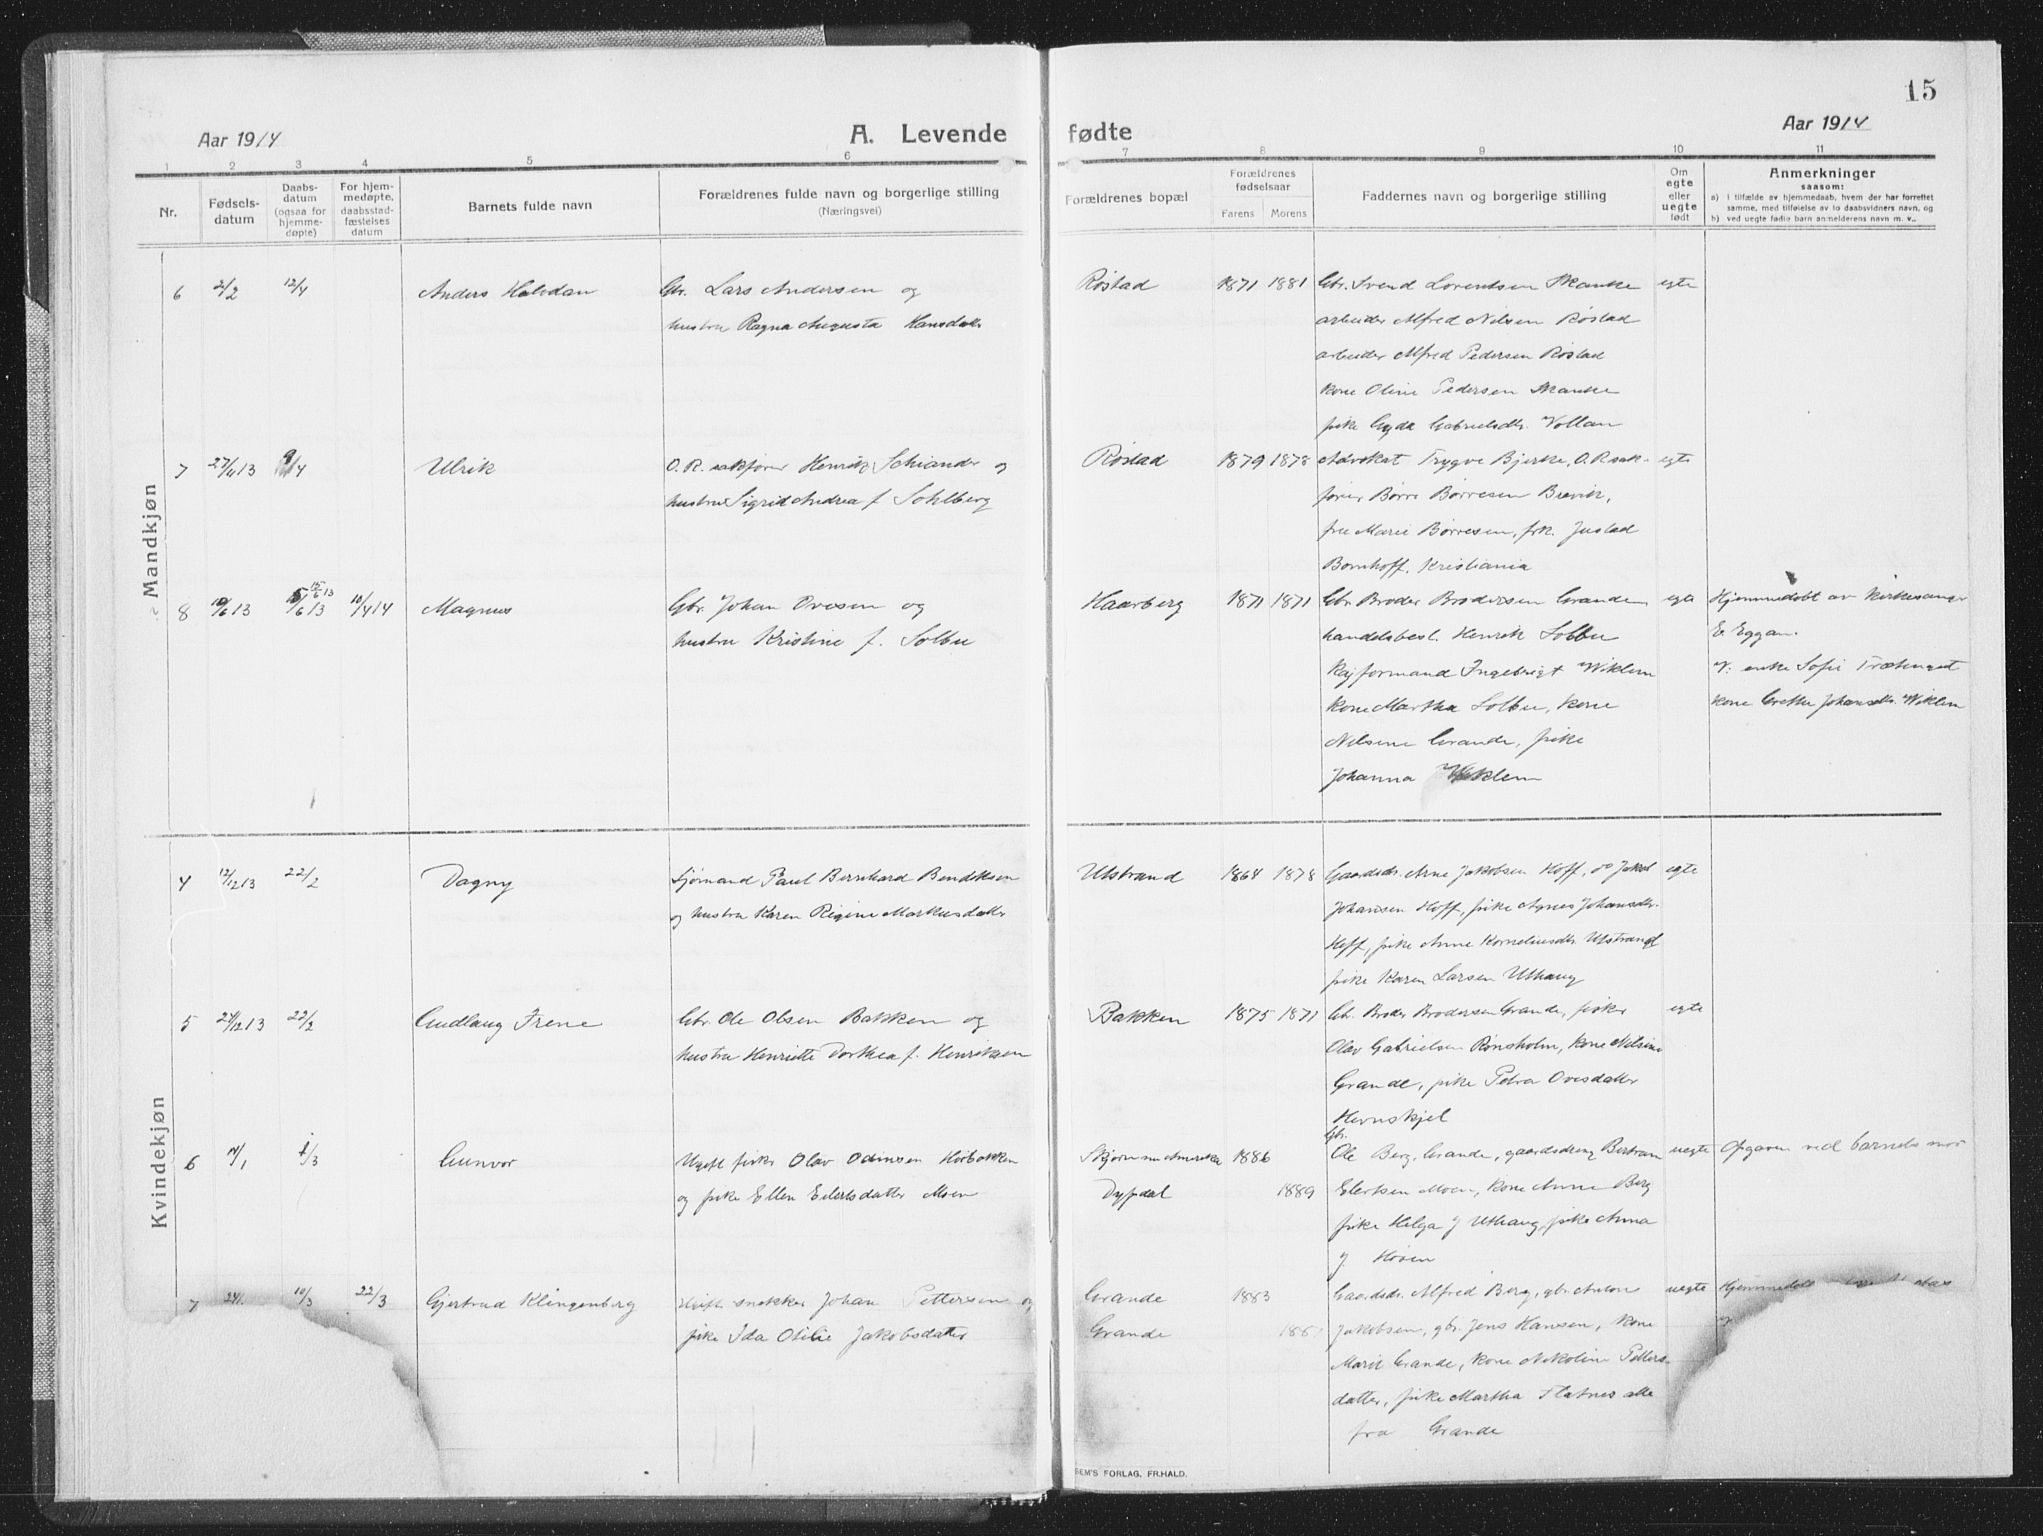 15
Aar 1914
A. Levende fødte
Aar 1914
1 2 3 4 5 6 7 8 9 10 11
Nr.
Fødsels-
datum
Daabs-
datum
(ogsaa for
hjemme-
døpte)
For hjem-
medøpte,
daabsstad-
fæstelses
datum
Barnets fulde navn
Forældrenes fulde navn og borgerlige stilling
(Næringsvei)
Forældrenes bopæl
Forældrenes
fødselsaar
Farens Morens
Faddernes navn og borgerlige stilling
Om
egte
eller
uegte
født
Anmerkninger
saasom:
a) i tilfælde av hjemmedaab, hvem der har forrettet
samme, med tilføielse av to daabsvidners navn, og
b) ved uegte fødte barn anmelderens navn m. v..
Mandkjøn
6 2/2 12/4 Anders Halvdan
Gbr. Lars Andersen og
hustru Ragna Augusta Hansdatter
Røstad 1871 1881
Gbr. Svend Lorentsen Skanke
arbeider Alfred Nilsen Røstad
arbeider Alfred Pedersen Røstad
kone Oline Pedersen Skanke
pike Gyda Gabrielsdtr. Vollan
egte
7 27/4 13 9/4 Ulrik
O.R. sakfører Henrik Schiander og
hustru Sigrid Andrea f. Sohlberg
Røstad 1879 1878
Advokat Trygve Bjerke, O.R.sak-
fører Børre Børresen Brevik,
fru Marie Børresen, frk. Justad
Bomhoff, Kristiania
egte
8 10/6 13 15/6 13 10/4 14 Magnus
Gbr. Johan Ovesen og
hustru Kristine f. Solbu
Haarberg 1871 1871
Gbr. Broder Brodersen Grande
handelsbest. Henrik Solbu
Kajformand Ingebrigt Wiklem
kone Martha Solbu, kone
Nilsine Grande, pike
Johanna Wiklem
egte
Hjemmedøbt av kirkesanger
E. Eggan.
V: enke Sofie
kone Grethe Johansdtr. Wiklem
Kvindekjøn
4 12/12 13 22/2 Dagny
Sjømand Paul Bernhard Bendiksen
og hustru Karen Regine Markusdatter
Utstrand 1864 1878
Gaardsdr. Arne Jakobsen Hoff, do Jakob
Johansen Hoff, pike Agnes Johansdtr.
Hoff, pike Anne Korneliusdtr. Utstrand
pike Karen Larsen Uthaug
egte
5 27/12 13 22/2 Gudlaug Irene
Gbr. Ole Olsen Bakken og
hustru Henriette Dorthea f. Henriksen
Bakken 1875 1871
Gbr. Broder Brodersen Grande, fisker
Olav Gabrielsen Rønsholm, kone Nilsine
Grande, pike Petra Ovesdatter
Hernskjel
egte
6 14/1 1/3 Gunvor
Ugift fisker Olav Odinsen Hørbakken
og pike Ellen Eilertsdatter Moen
Skjørn nu Amerika 1886
Dypdal 1889
Gbr.
Ole Berg, Grande, gaardsdreng Bertram
Eilertsen Moen, kone Anne Berg
pike Helga J Uthaug, pike Anna
J Hoven
uegte
Opgaven ved barnets mor
7 24/ 10/3 22/3 Gjertrud Klingenberg
Ugift snekker Johan Pettersen og
pike Ida Otilie Jakobsdatter
Grande 1883
Grande
Gaardsdr. Alfred Berg, gbr. Anton
Jakobsen, gbr. Jens Hansen, kone
Marit Grande, kone Nikoline Petters-
datter, pike Martha Flatnes alle
fra Grande
uegte
Hjemmedøbt
SEM'S FORLAG, FR.HALD.